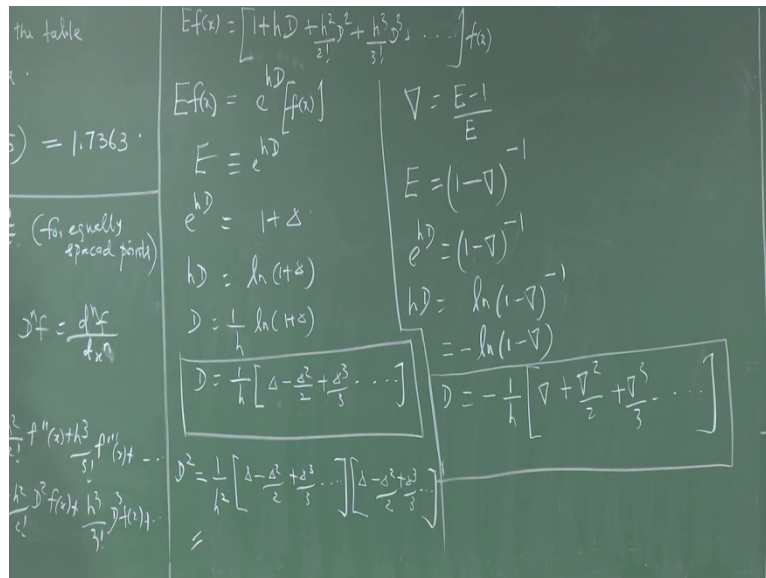 the table
) = 1.7363.
(for equally
spaced points)
Dⁿf = dⁿf/dxⁿ
h²/2! f''(x) + h³/3! f'''(x) + ...
h²/2! D²f(x) + h³/3! D³f(x) + ...
Ef(x) = [1+hD + h²/2! D² + h³/3! D³ + ....] f(x)
Ef(x) = e^{hD} [f(x)]
E ≡ e^{hD}
e^{hD} = 1+Δ
hD = ln(1+Δ)
D = 1/h ln(1+Δ)
D = 1/h [Δ - Δ²/2 + Δ³/3 ....]
D² = 1/h² [Δ - Δ²/2 + Δ³/3 ....] [Δ - Δ²/2 + Δ³/3 ...]
=
∇ = (E-1)/E
E = (1-∇)⁻¹
e^{hD} = (1-∇)⁻¹
hD = ln(1-∇)⁻¹
= -ln(1-∇)
D = -1/h [∇ + ∇²/2 + ∇³/3 ....]